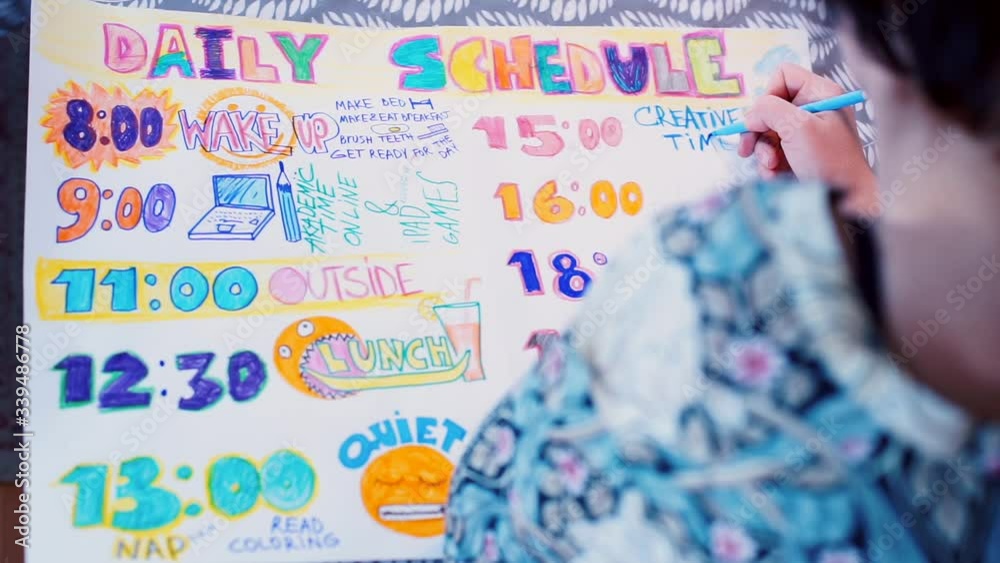 DAILY SCHEDULE
8:00 WAKE UP
MAKE BED
MAKE & EAT BREAKFAST
BRUSH TEETH
GET READY FOR THE DAY
9:00
ACADEMIC
TIME
ONLINE
&
IPAD
GAMES
11:00 OUTSIDE
12:30 LUNCH
13:00 QUIET
NAP
READ
COLORING
15:00 CREATIVE
TIME
16:00
18:
Adobe Stock | #339486778